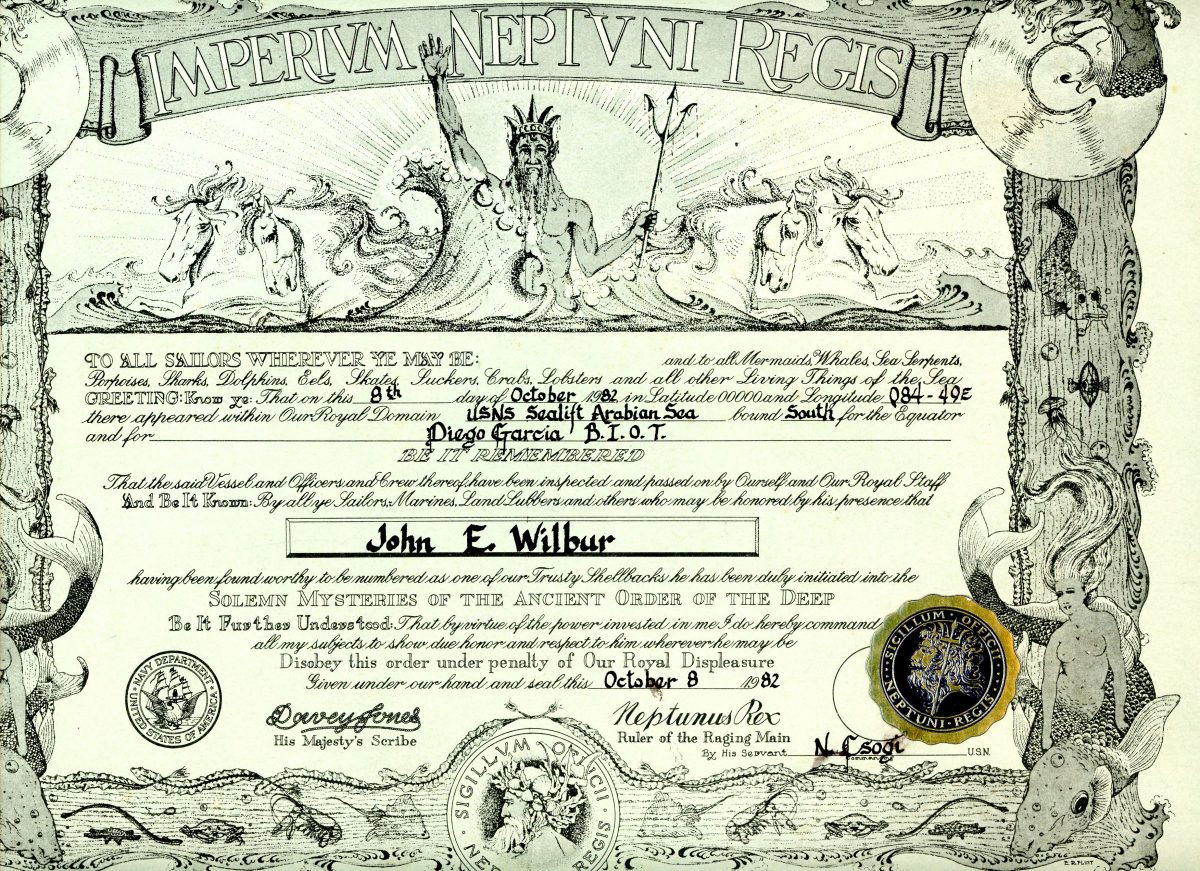 IMPERIVM NEPTVNI REGIS
TO ALL SAILORS WHEREVER YE MAY BE: and to all Mermaids, Whales, Sea Serpents,
Porpoises, Sharks, Dolphins, Eels, Skates, Suckers, Crabs, Lobsters and all other Living Things of the Sea
GREETING: Know ye: That on this 8th day of October 1982 in Latitude 00000 and Longitude 084-49E
there appeared within Our Royal Domain USNS Sealift Arabian Sea bound South for the Equator
and for Diego Garcia B.I.O.T.
BE IT REMEMBERED
That the said Vessel and Officers and Crew thereof, have been inspected and passed on by Ourself and Our Royal Staff
And Be It Known: By all ye Sailors, Marines, Land Lubbers and others who may be honored by his presence that
John E. Wilbur
having been found worthy to be numbered as one of our Trusty Shellbacks he has been duly initiated into the
SOLEMN MYSTERIES OF THE ANCIENT ORDER OF THE DEEP
Be It Further Understood: That by virtue of the power invested in me I do hereby command
all my subjects to show due honor and respect to him wherever he may be
Disobey this order under penalty of Our Royal Displeasure
Given under our hand and seal this October 8 1982
NAVY DEPARTMENT
UNITED STATES OF AMERICA
Davey Jones
His Majesty's Scribe
Neptunus Rex
Ruler of the Raging Main
By His Servant N. Csogi U.S.N.
SIGILLUM OFFICII
NEPTUNI · REGIS
SIGILLVM OFFICII
REGIS